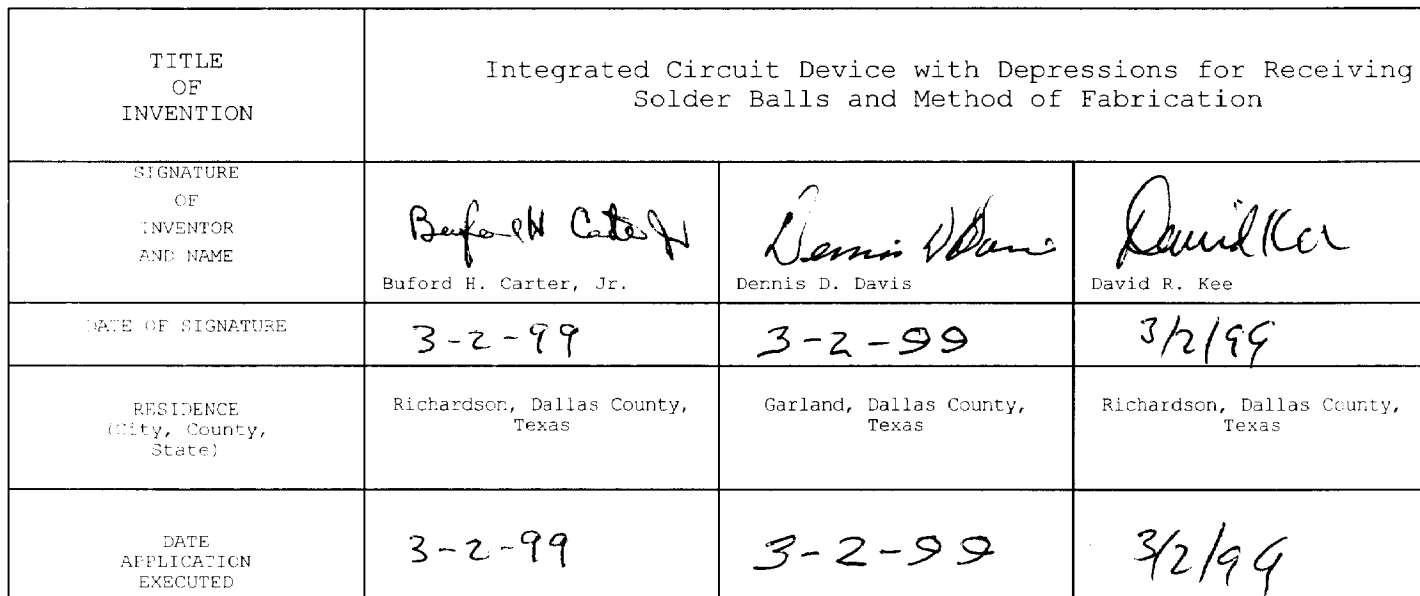 TITLE
OF
INVENTION
Integrated Circuit Device with Depressions for Receiving
Solder Balls and Method of Fabrication
SIGNATURE
OF
INVENTOR
AND NAME
Buford H Carter Jr
Dennis D Davis
David Kee
Buford H. Carter, Jr.
Dennis D. Davis
David R. Kee
DATE OF SIGNATURE
3-2-99
3-2-99
3/2/99
RESIDENCE
(City, County,
State)
Richardson, Dallas County,
Texas
Garland, Dallas County,
Texas
Richardson, Dallas County,
Texas
DATE
APPLICATION
EXECUTED
3-2-99
3-2-99
3/2/99